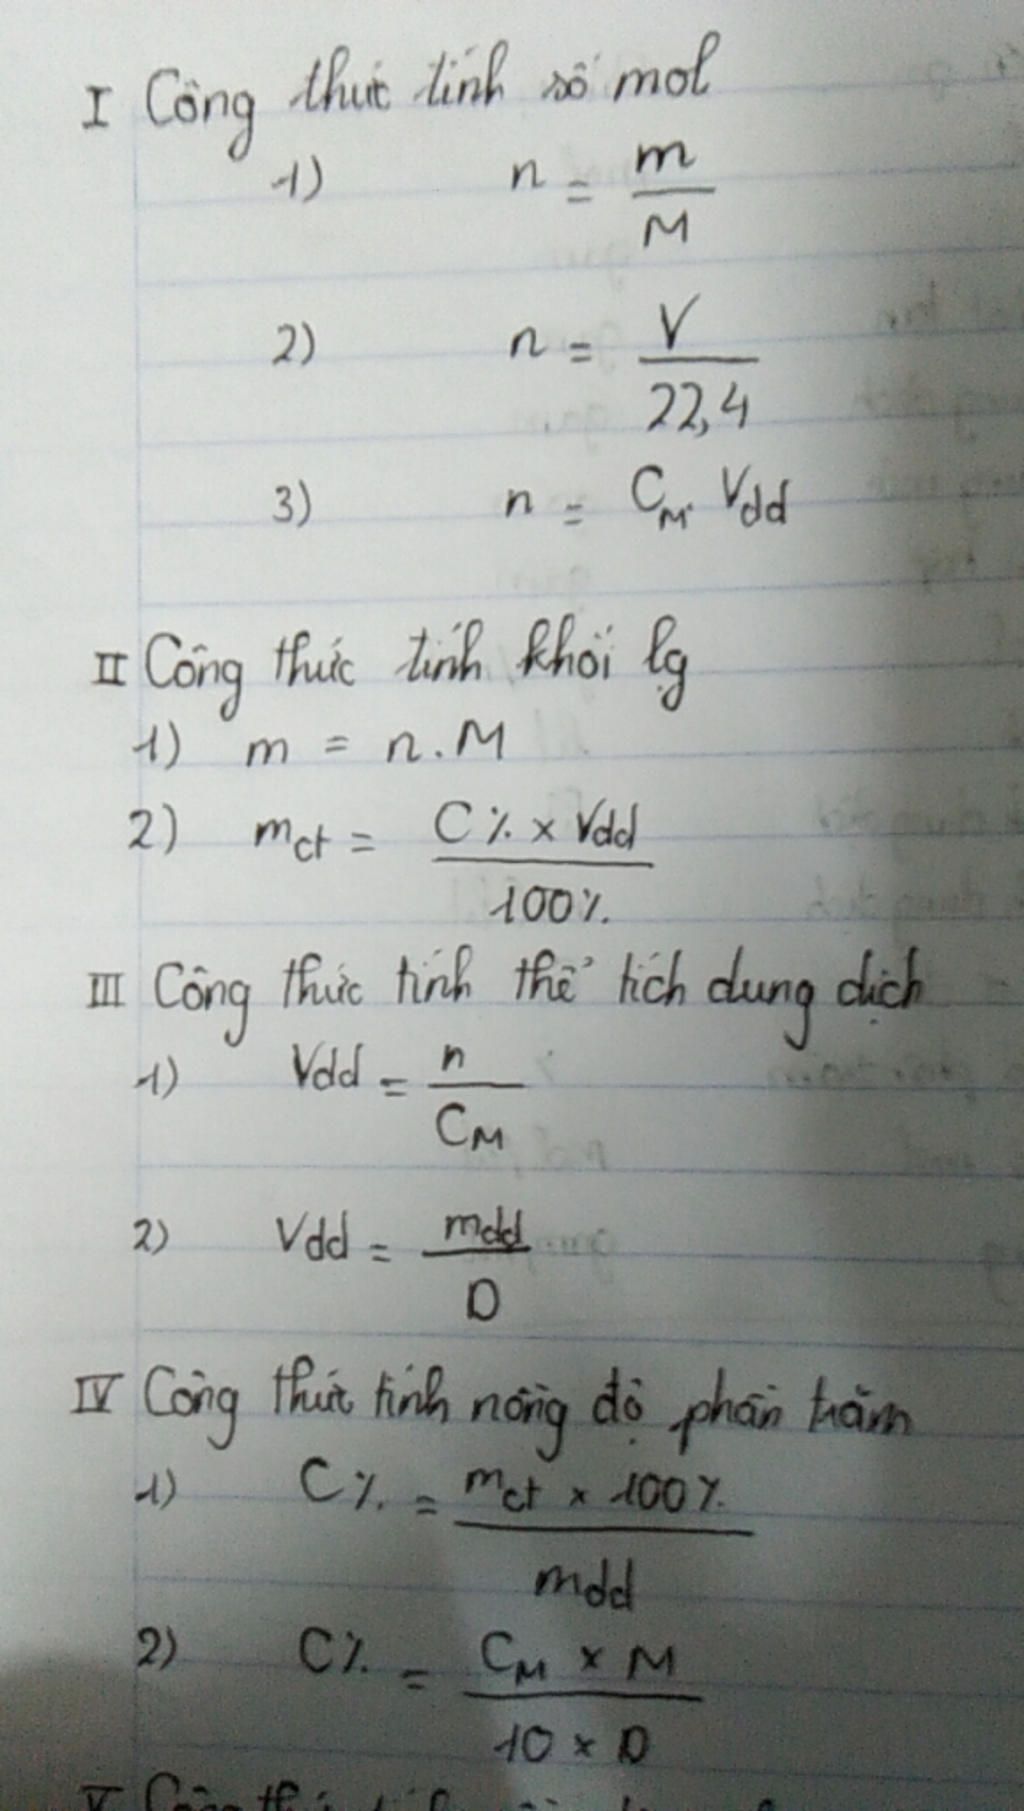 I Công thức tính số mol
1) n = m/M
2) n = V/22,4
3) n = CM. Vdd
II Công thức tính khối lg
1) m = n.M
2) mct = C% x Vdd / 100%
III Công thức tính thể tích dung dịch
1) Vdd = n/CM
2) Vdd = mdd/D
IV Công thức tính nồng độ phần trăm
1) C% = mct x 100% / mdd
2) C% = CM x M / 10 x D
V Công thức tính